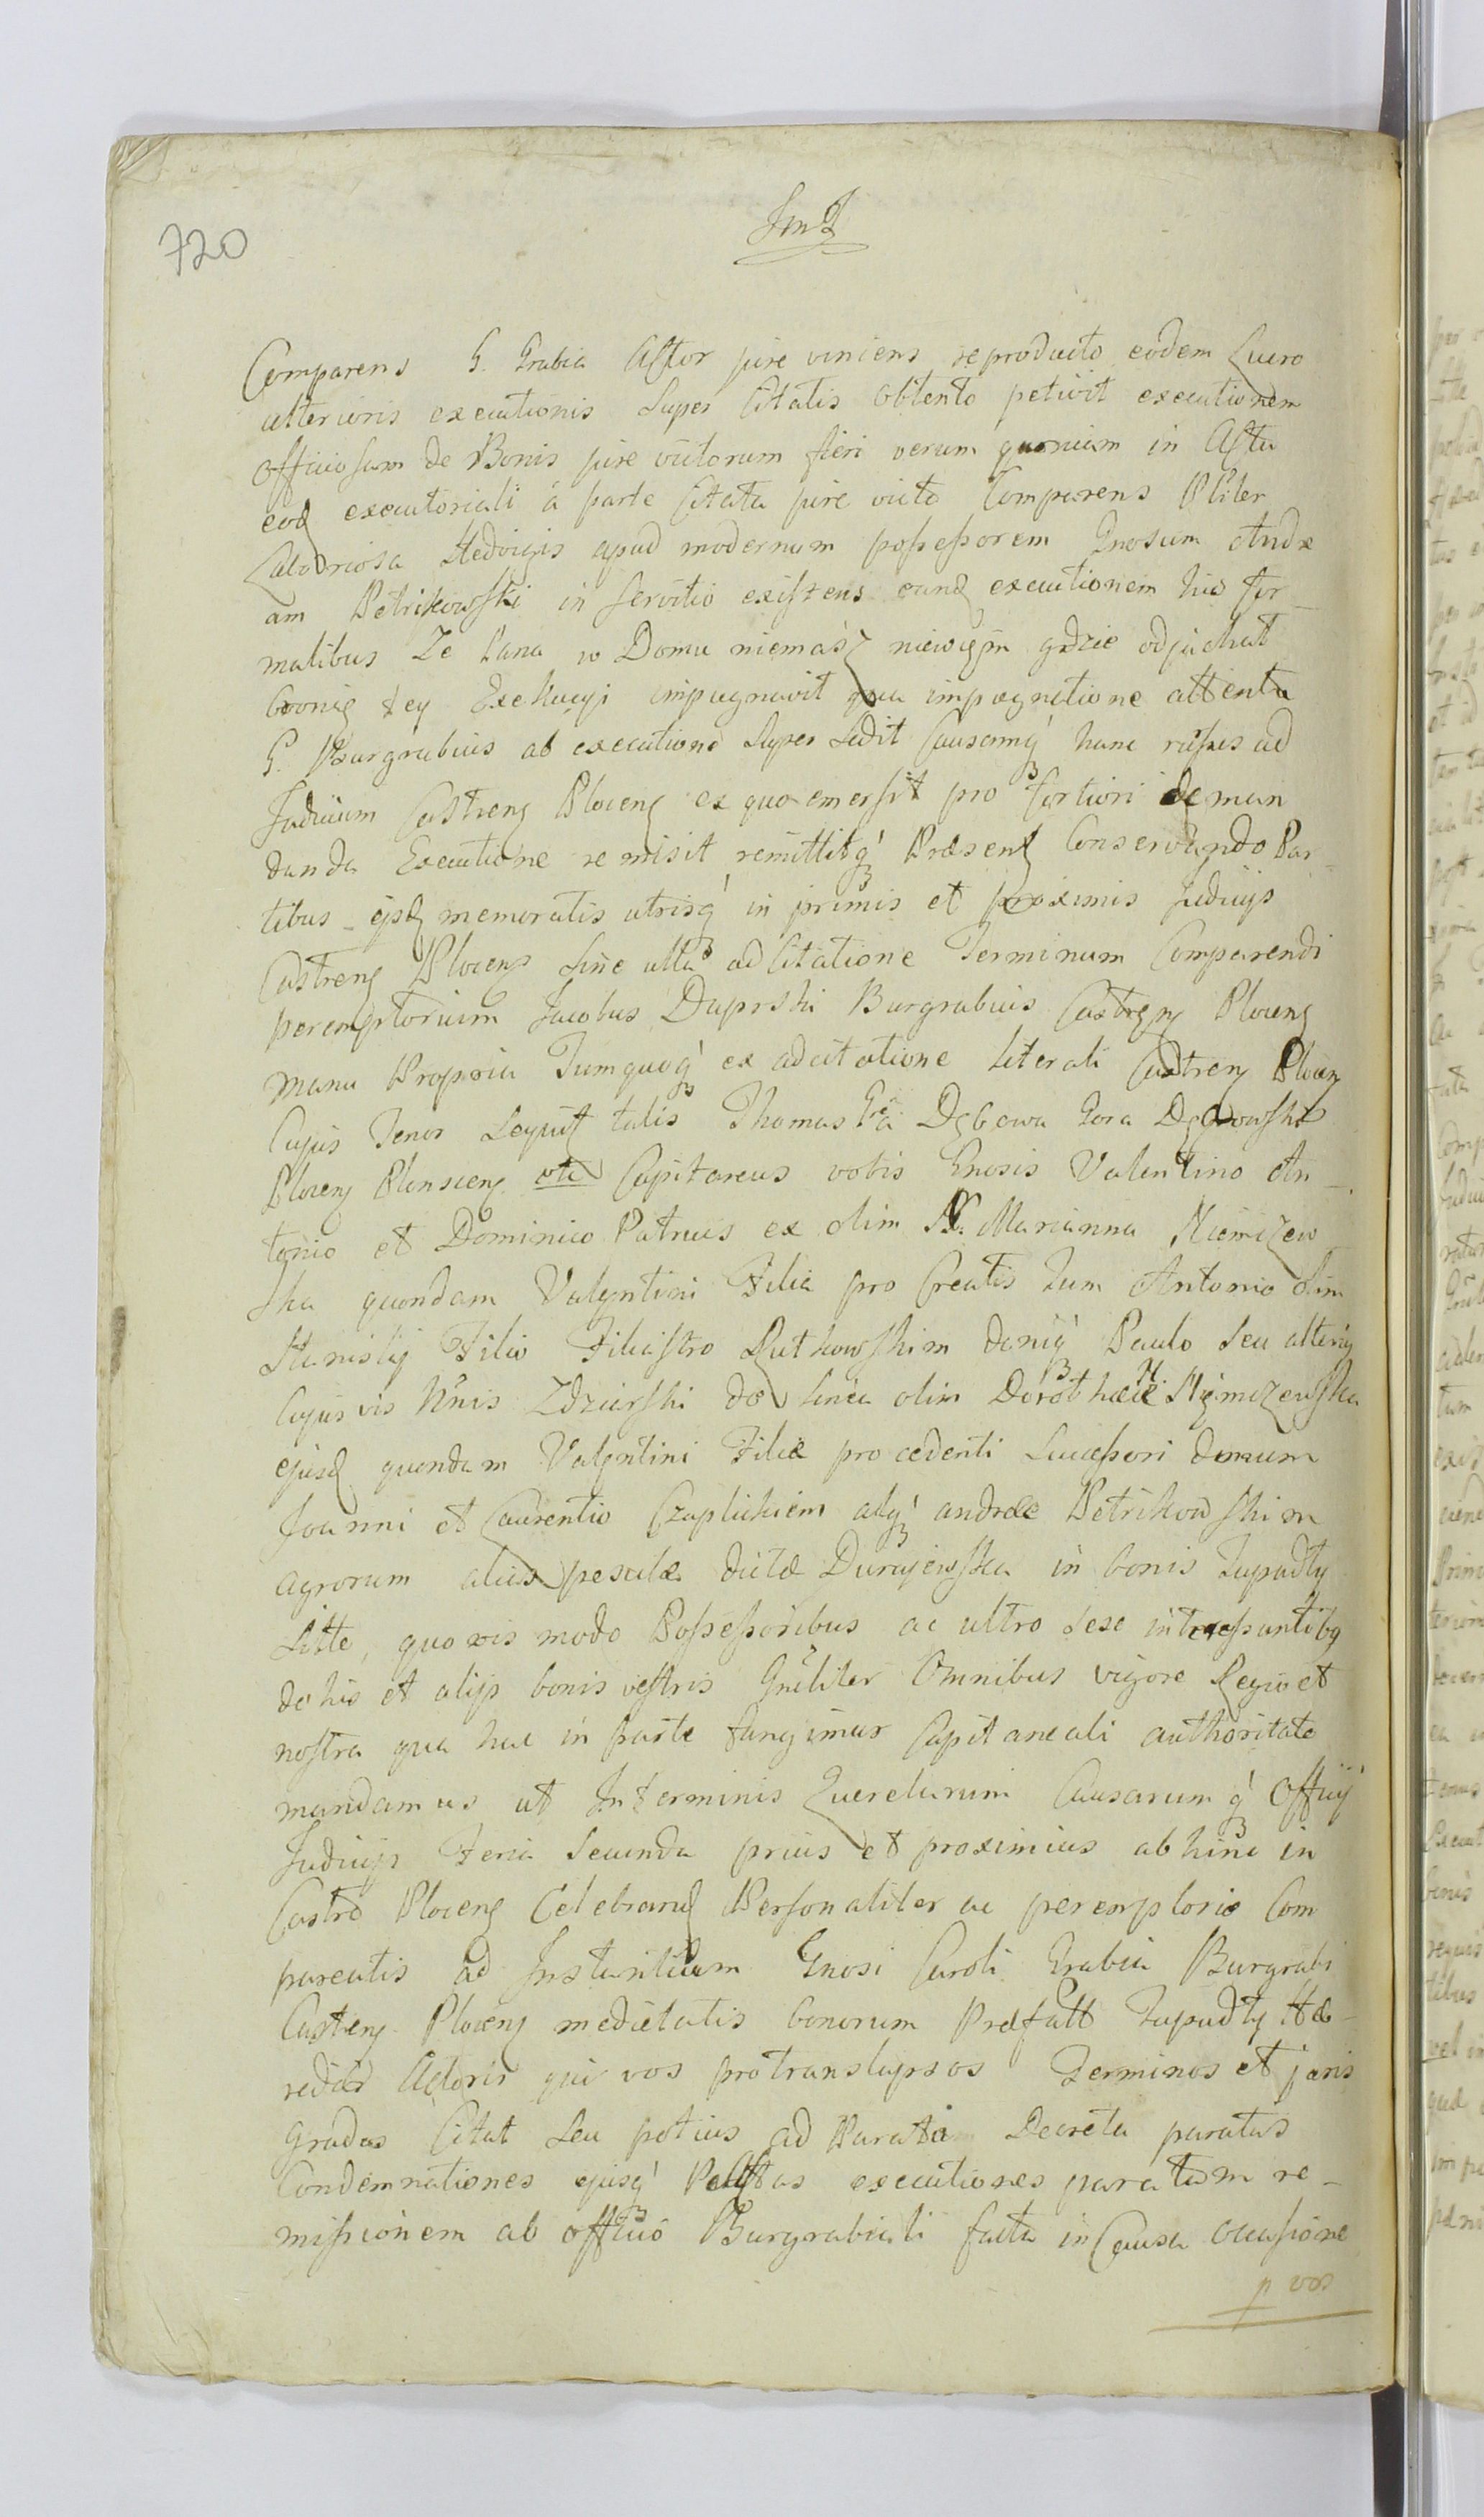 720
Comparens G. Grabia Actor jure vincens reproducto eodem Lucro
ulterioris executionis super Citatis obtento petivit executionem
officiosam de Bonis jure victorum fieri verum quoniam in Actu
eod executoriali a parte Citata jure victo Comparens Pliter
Laboriosa Hedvigis apud modernum possessorem Gnosum Andre
am Petrikowski in servitio existens eand executionem his for
malibus Ze Pana w Domu niemasz niewiem gdzie odjachał
bronię tey Exekucyi impugnavit qua impugnatione attenta
G. Burgrabius ab executione super sedit Causamq hanc rursus ad
Judicium Castren Plocen ex quo emersit pro fortiori deman
danda Executione remisit remittitq Præsen Conservando Par
tibus ipsis memoratis utrisq in primis et proximis Judicijs
Castren Plocen sine ulla adcitatione Terminum Comparendi
peremptorium Jacobus Burgrabius Castren Plocen
manu Propria Tumquoq ex adcitatione literali Castren Plocen
Cujus Tenor sequit talis Thomas a Dębowa Gora Dębowski
Plocen Plonscen Capitaneus vobis Gnosis Valentino An
tonio et Dominico Patruis ex olim N. Marianna Niemczew
ska quondam Valentini Filia pro Creatis Tum Antonio olim
Stanislai Filio Filiastro Rutkowskim deniq Paulo seu alteri
Cujusvis Nnis Zdziarski de linea olim Dorothææ Niemczewska
ejusd quondam Valentini Filiæ procedenti Successori demum
Joanni et Laurentio Czaplickiem atq andreæ Petrikowskim
agrorum alias pesulæ dictæ Durajewska in bonis Zupadły
Sitte, quovis modo Possessoribus ac ultro sese intromissuntibq
de his et alijs bonis vestris Gnëliter Omnibus vigore Regio et
nostra qua hac in parte fungimur Capitaneali authoritate
mandamus ut In terminis Querelarum Causarumq Officij
Judicijs Feria Secunda prius et proximius abhinc in
Castro Plocen Celebrand Personaliter ac peremptorie Com
pareatis ad Instantiam Gnosi Caroli Grabia Burgrabi
Castren Plocen medietatis bonorum Præfatt Zupadły Hæ
redis Actoris qui vos pro translapsos Terminos et juris
gradus Citat seu potius ad Paratam Decreta paratas
Condemnationes ejusq executiones paratam re-
missionem ab officio Burgrabiali facta in Causa occasione
p vos